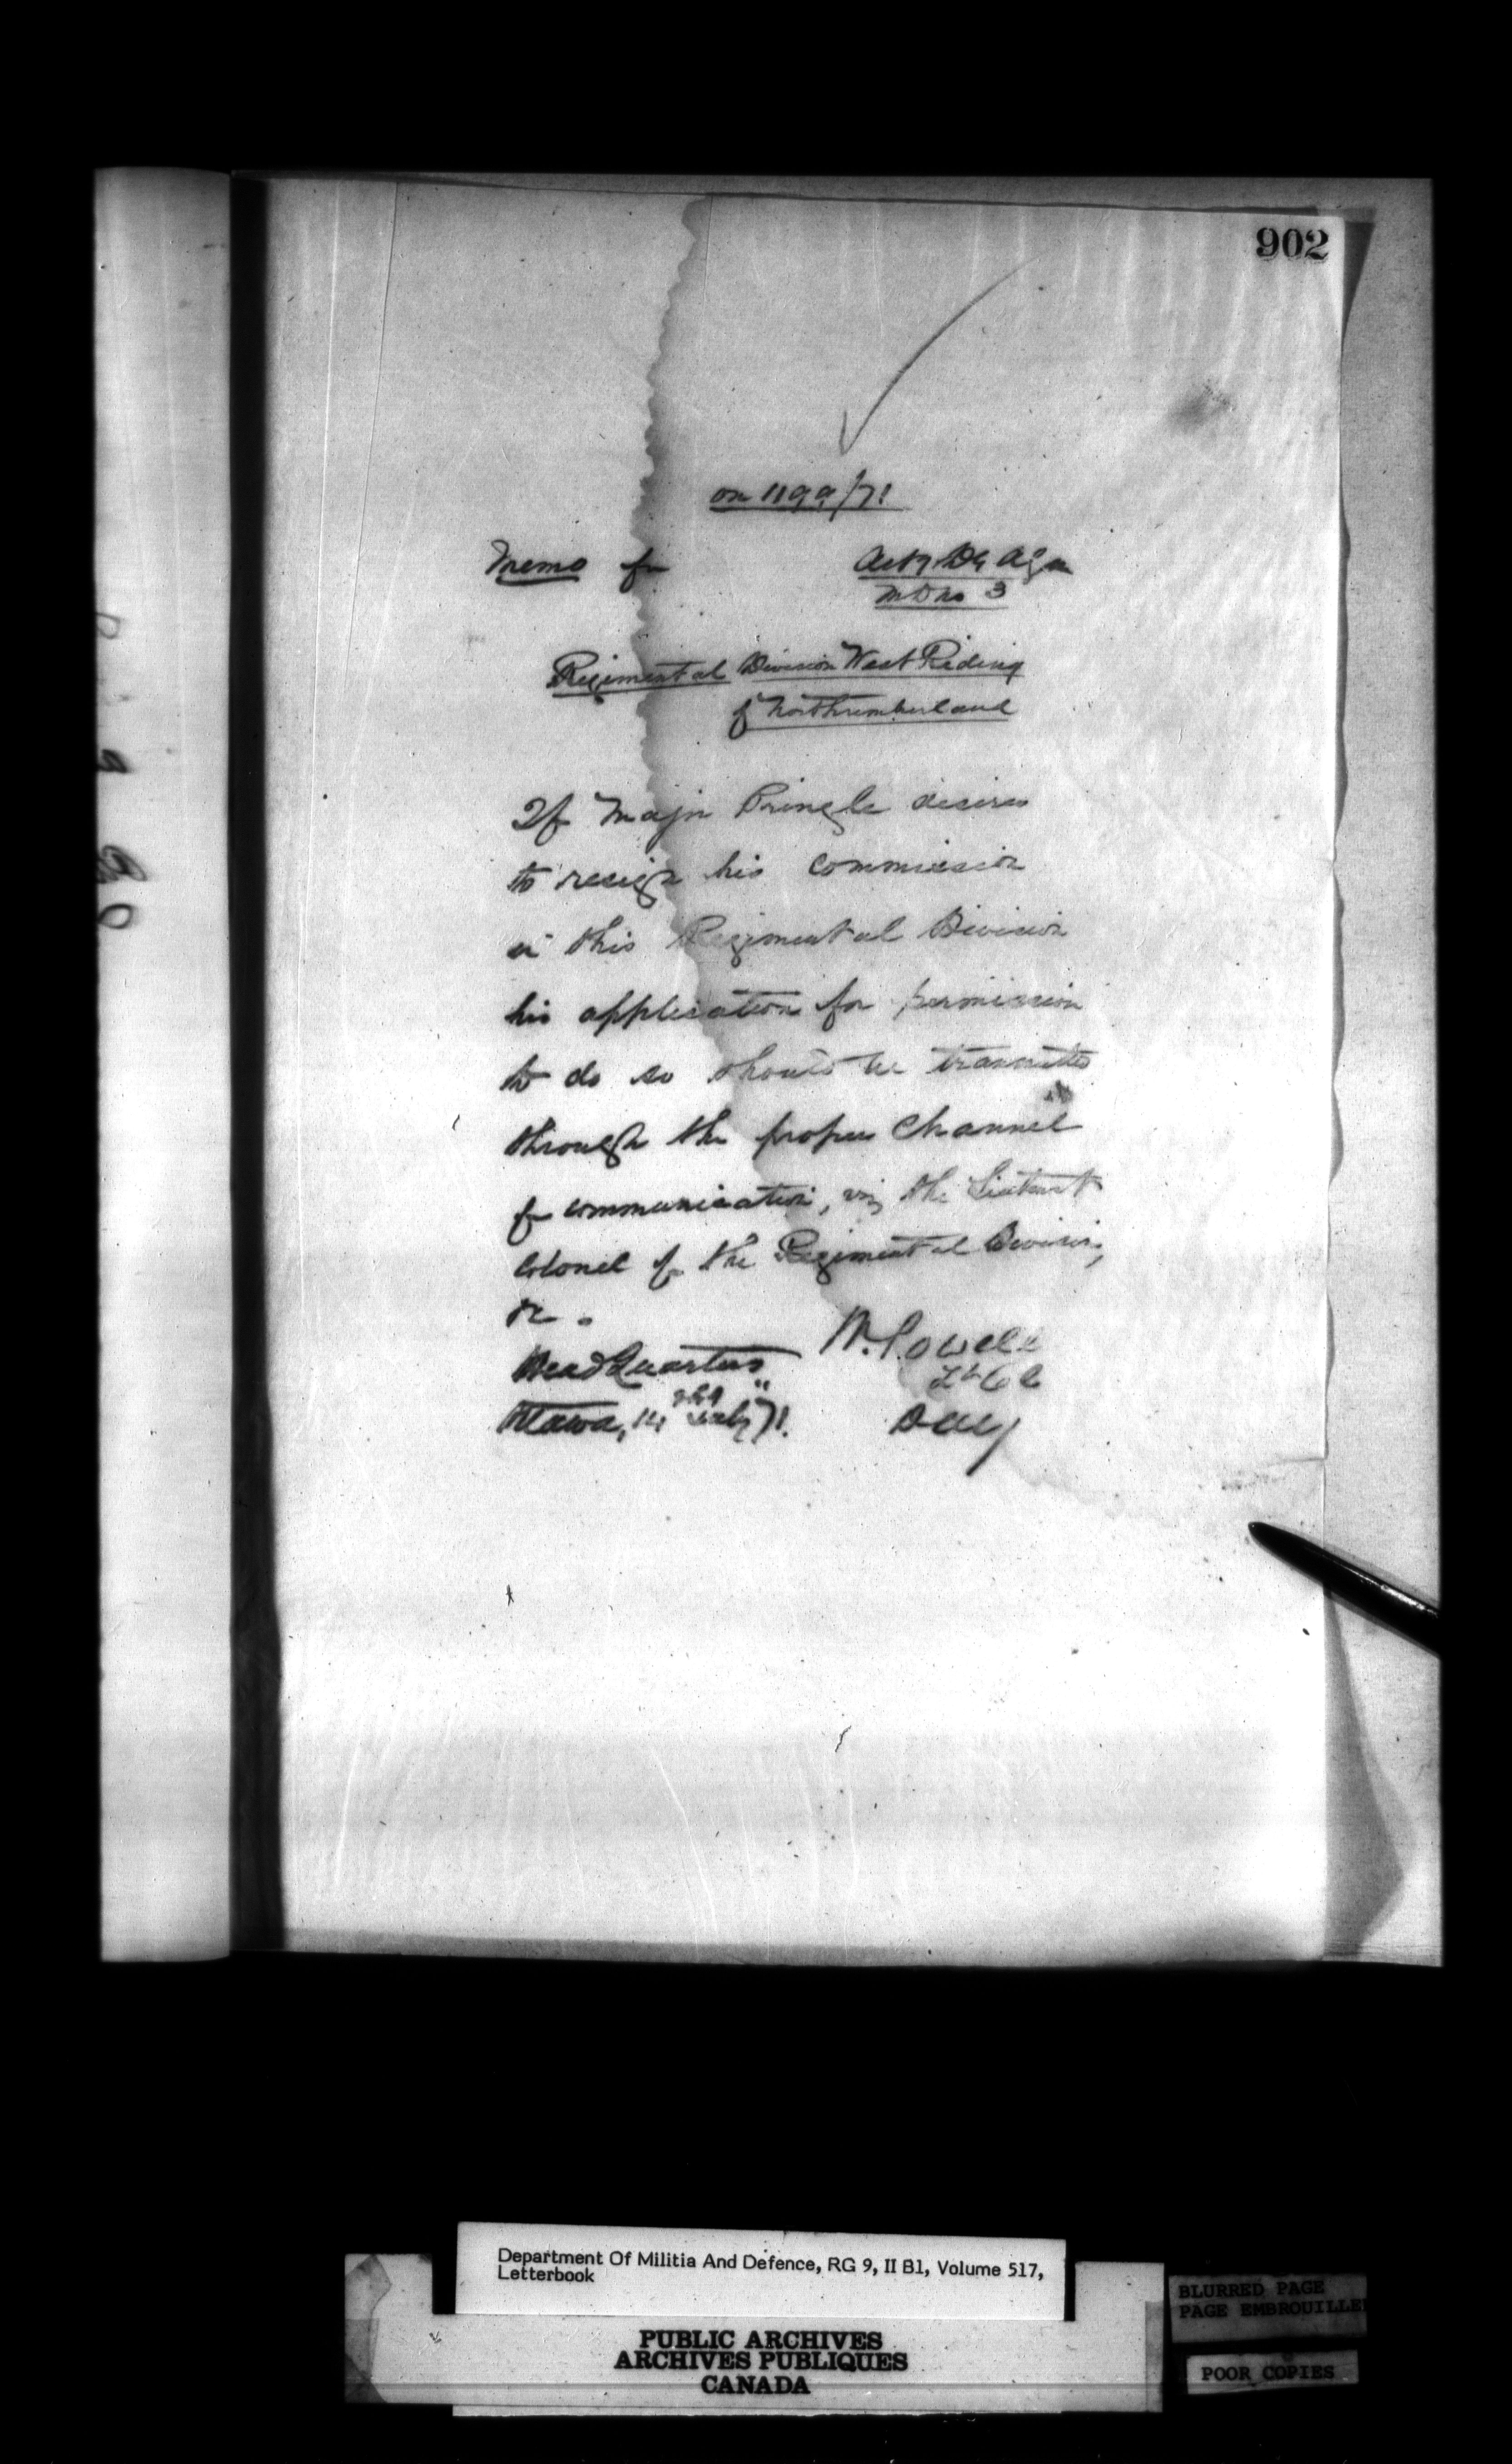 902
on 1199/71
Memo for
Actg D A Gen
M D No 3
Regimental Division West Riding
of Northumberland
If Major Pringle desires
to resign his commission
in this Regimental Division
his application for permission
to do so should be transmitted
through the proper channel
of communication, viz the Lieutent
Colonel of the Regimental Division,
&c.
W. Powell
Lt Col
Head Quarters
Ottawa, 14 July 71.
Department Of Militia And Defence, RG 9, II B1, Volume 517,
Letterbook
PUBLIC ARCHIVES
ARCHIVES PUBLIQUES
CANADA
BLURRED PAGE
PAGE EMBROUILLEE
POOR COPIES